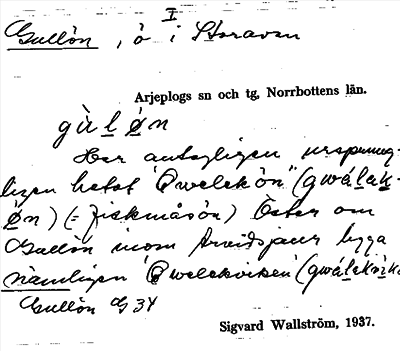 I
Gullön, ö i Storavan
Arjeplogs sn och tg, Norrbottens län.
gùlön
Har antagligen ursprung-
ligen hetat "Qwelekön" (gwálak-
ön) (= Fiskmåsön) Öster om
Gullön inom Arvidsjaur ligga
nämligen "Qwelekviken" (gwálek
Gullön G 34
Sigvard Wallström, 1937.